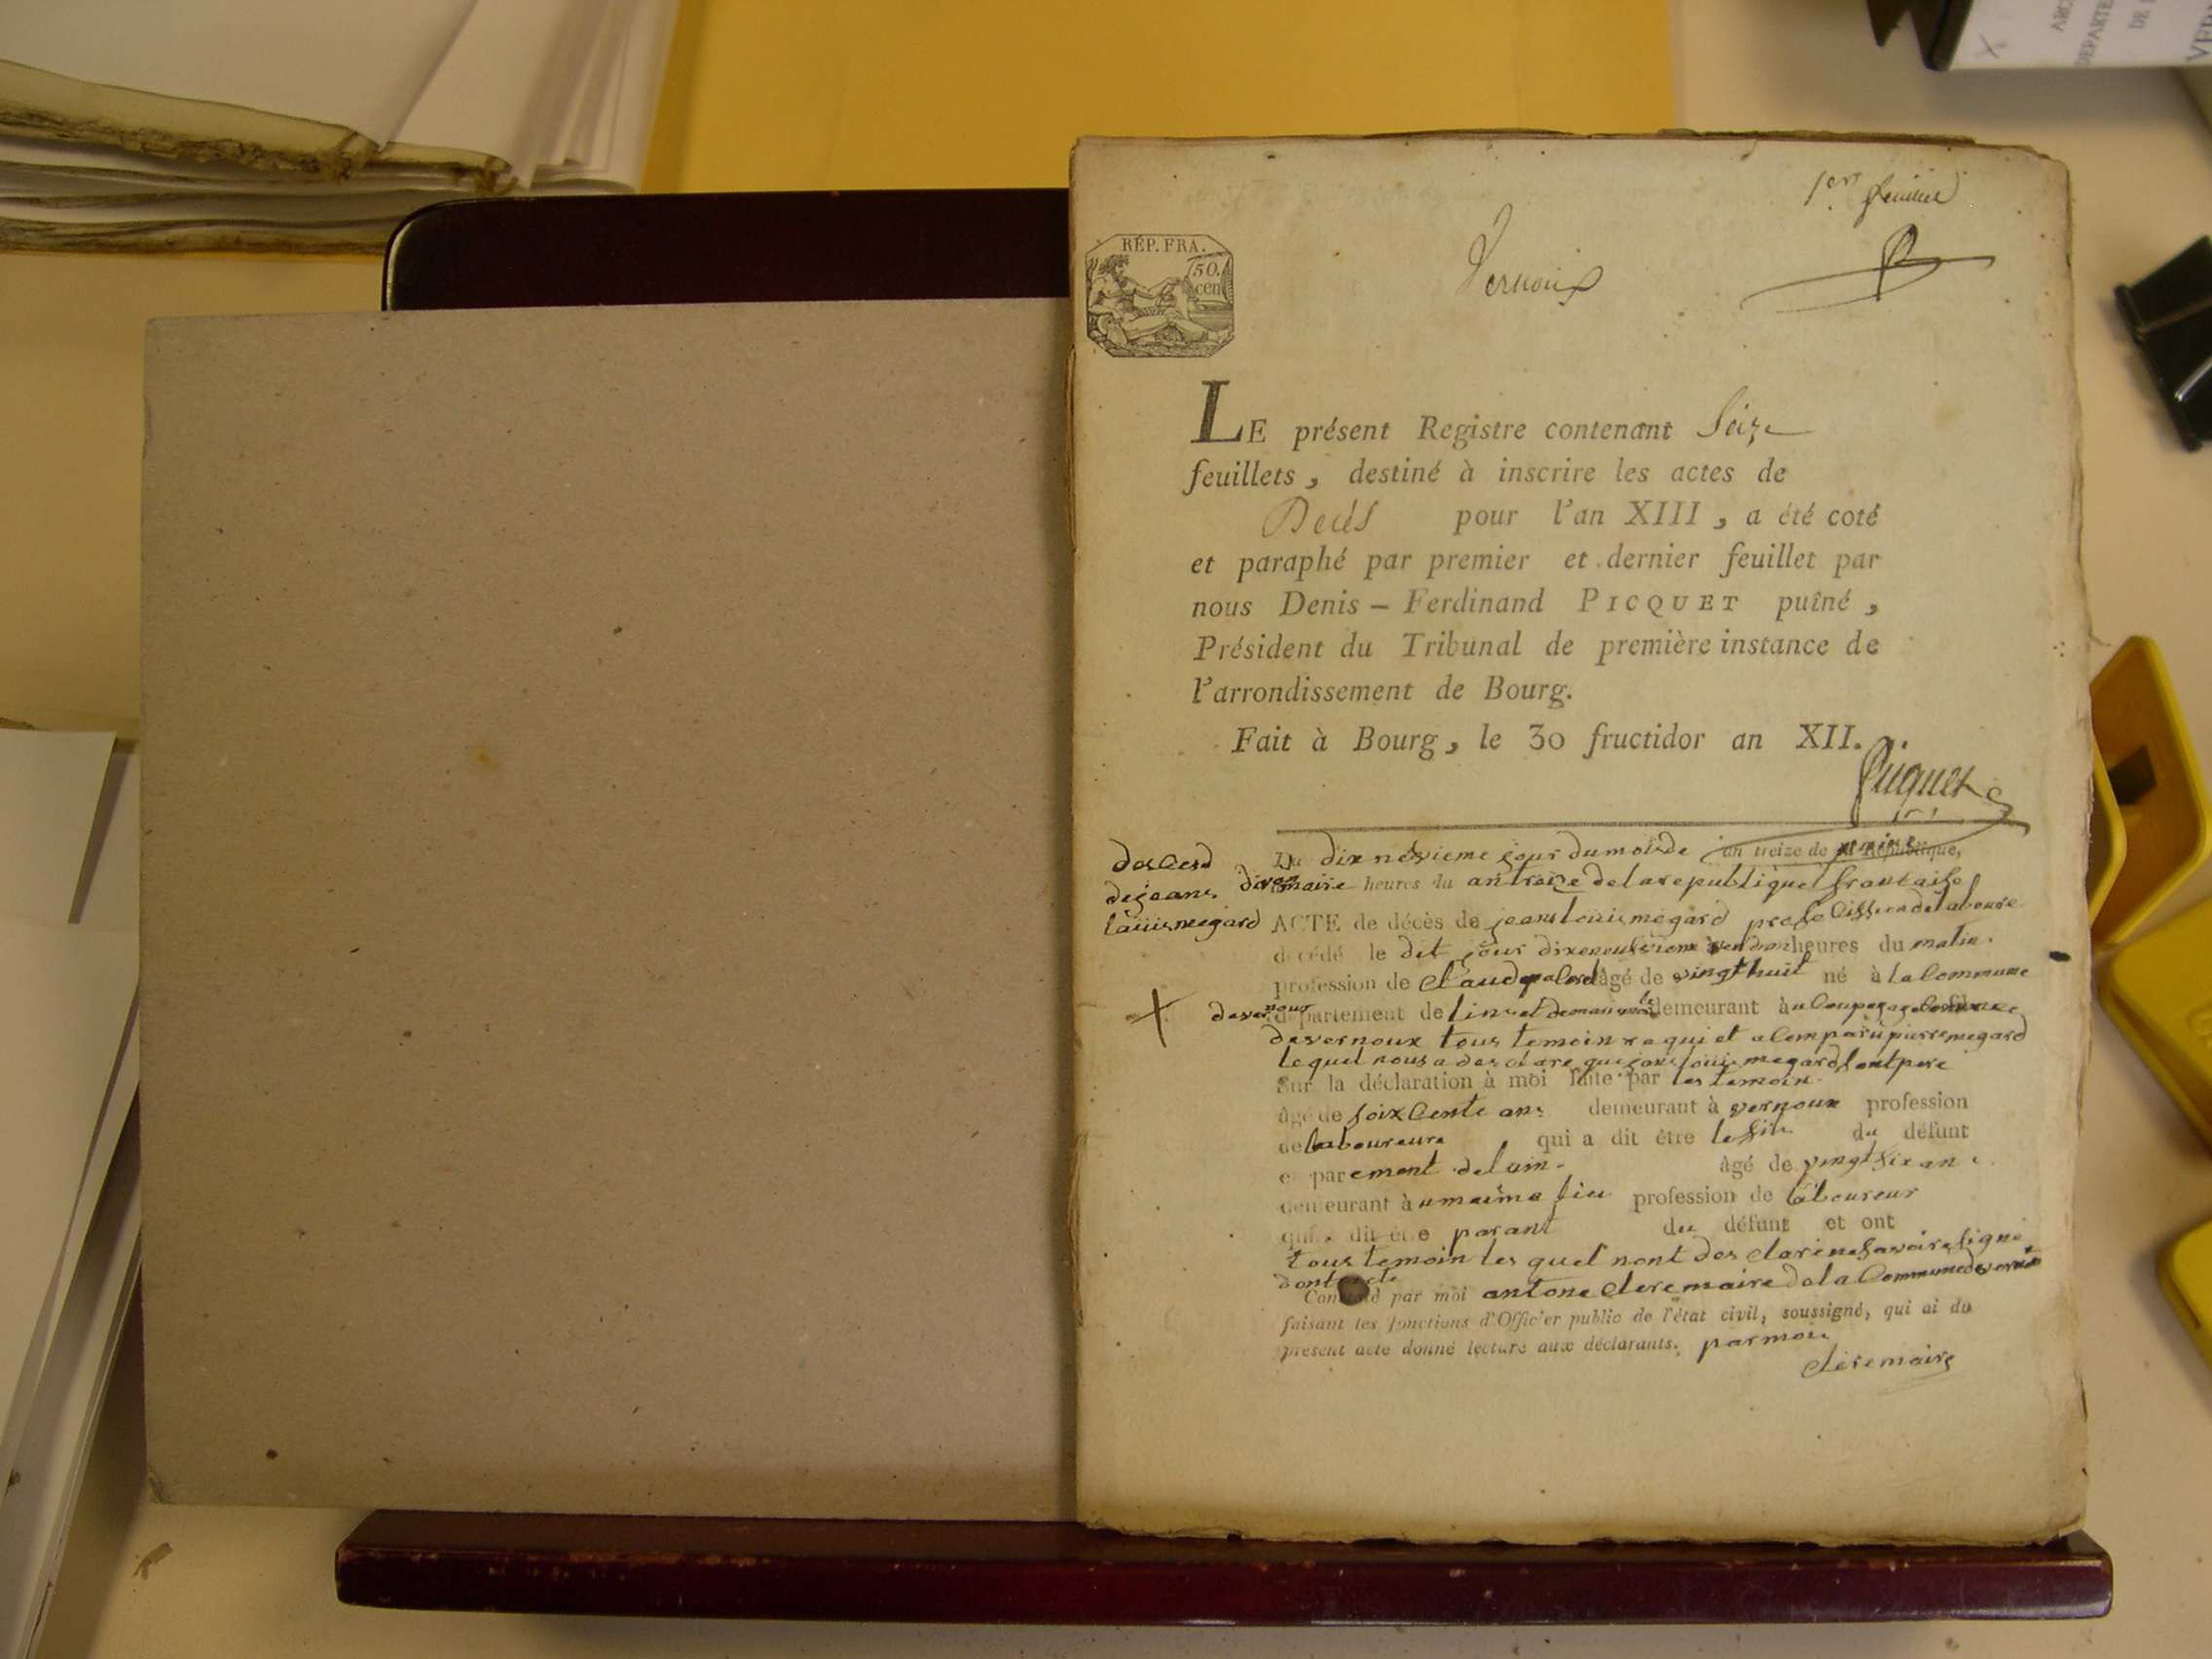 ARC
DEPARTE
DE L
VER
1er feuillet
Vernoux
RÉP. FRA.
50.
cen
LE présent Registre contenant Seize
feuillets, destiné à inscrire les actes de
Decès pour l'an XIII, a été coté
et paraphé par premier et dernier feuillet par
nous Denis-Ferdinand PICQUET puîné,
Président du Tribunal de première instance de
l'arrondissement de Bourg.
Fait à Bourg, le 30 fructidor an XII.
Picquet
Du dix nevieme jour du mois de an treize de la République,
heures du an treize de la republique francaise
desCesd
de jeans
louis megard
ACTE de décès de jean louis megard
décédé le dit jour heures du matin
profession de âgé de vingt huit né à la Commune
devernoux département de lin demeurant à
devernoux tous temoin a comparu pierre megard
lequel nous a des clare que jans louis megard
Sur la déclaration à moi faite par les temoin
âgé de soixCente ans demeurant à vernoux profession
de laboureure qui a dit être le fils du défunt
et parement del âgé de vingt six an
demeurant à u maime lieu profession de laboureur
qui a dit être parant du défunt et ont
tous temoin les quel nont des clare ne savoire signe
dont acte
Constaté par moi antone Clere maire de la Commune de vernoux
faisant les fonctions d'Officier public de l'état civil, soussigné, qui ai du
présent acte donné lecture aux déclarants. par moi
Clere maire